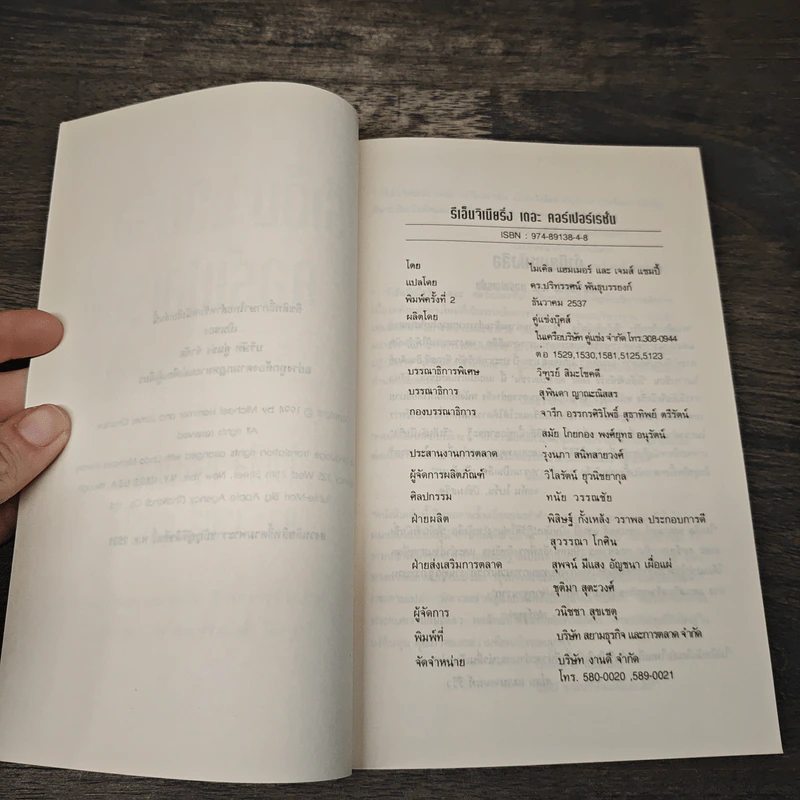 รีเอ็นจิเนียริ่ง เดอะ คอร์เปอร์เรชั่น
ISBN : 974-89138-4-8
โดย ไมเคิล แฮมเมอร์ และ เจมส์ แชมปี้
แปลโดย ดร.ปริทรรศน์ พันธุบรรยงก์
พิมพ์ครั้งที่ 2 ธันวาคม 2537
ผลิตโดย คู่แข่งบุ๊คส์
ในเครือบริษัท คู่แข่ง จำกัด โทร.308-0944
ต่อ 1529,1530,1581,5125,5123
บรรณาธิการพิเศษ วิฑูรย์ สิมะโชคดี
บรรณาธิการ สุพินดา ญาณะณิสสร
กองบรรณาธิการ จารึก อรรถกรศิริโพธิ์ สุธาทิพย์ ตรีรัตน์
สมัย โกยกอง พงศ์ยุทธ อนุรัตน์
ประสานงานการตลาด รุ่งนภา สนิทสายวงศ์
ผู้จัดการผลิตภัณฑ์ วิไลรัตน์ ยุวนิชยากุล
ศิลปกรรม ทนัย วรรณชัย
ฝ่ายผลิต พิสิษฐ์ กั้งเหล้ง วราพล ประกอบการดี
สุวรรณา โกศิน
ฝ่ายส่งเสริมการตลาด สุพจน์ มีแสง อัญชนา เผื่อแผ่
ชุติมา สุตะวงศ์
ผู้จัดการ วนิชชา สุขเชตุ
พิมพ์ที่ บริษัท สยามธุรกิจ และการตลาด จำกัด
จัดจำหน่าย บริษัท งานดี จำกัด
โทร. 580-0020 ,589-0021